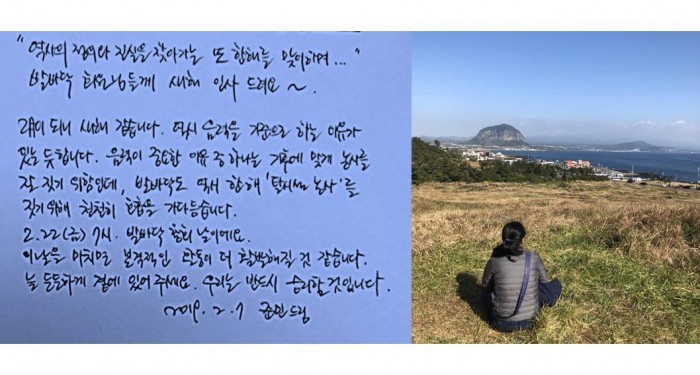 "역사의 정의와 진실을 찾아가는 또 한해를 맞이하며..."
발바닥 회원님들께 새해 인사 드려요~.
2월이 되니 새해 같습니다. 역시 음력을 기준으로 하는 이유가
있는 듯합니다. 음력이 중요한 이유 중 하나는 기후에 맞게 농사를
잘 짓기 위함인데, 발바닥도 역시 한 해 '탈시설 농사'를
짓기 위해 천천히 호흡을 가다듬습니다.
2.22(금) 7시. 발바닥 총회 날이에요.
이날을 마치면 본격적인 활동이 더 활발해질 것 같습니다.
늘 든든하게 곁에 있어 주세요. 우리는 반드시 승리할 것입니다.
2019. 2. 7 드림